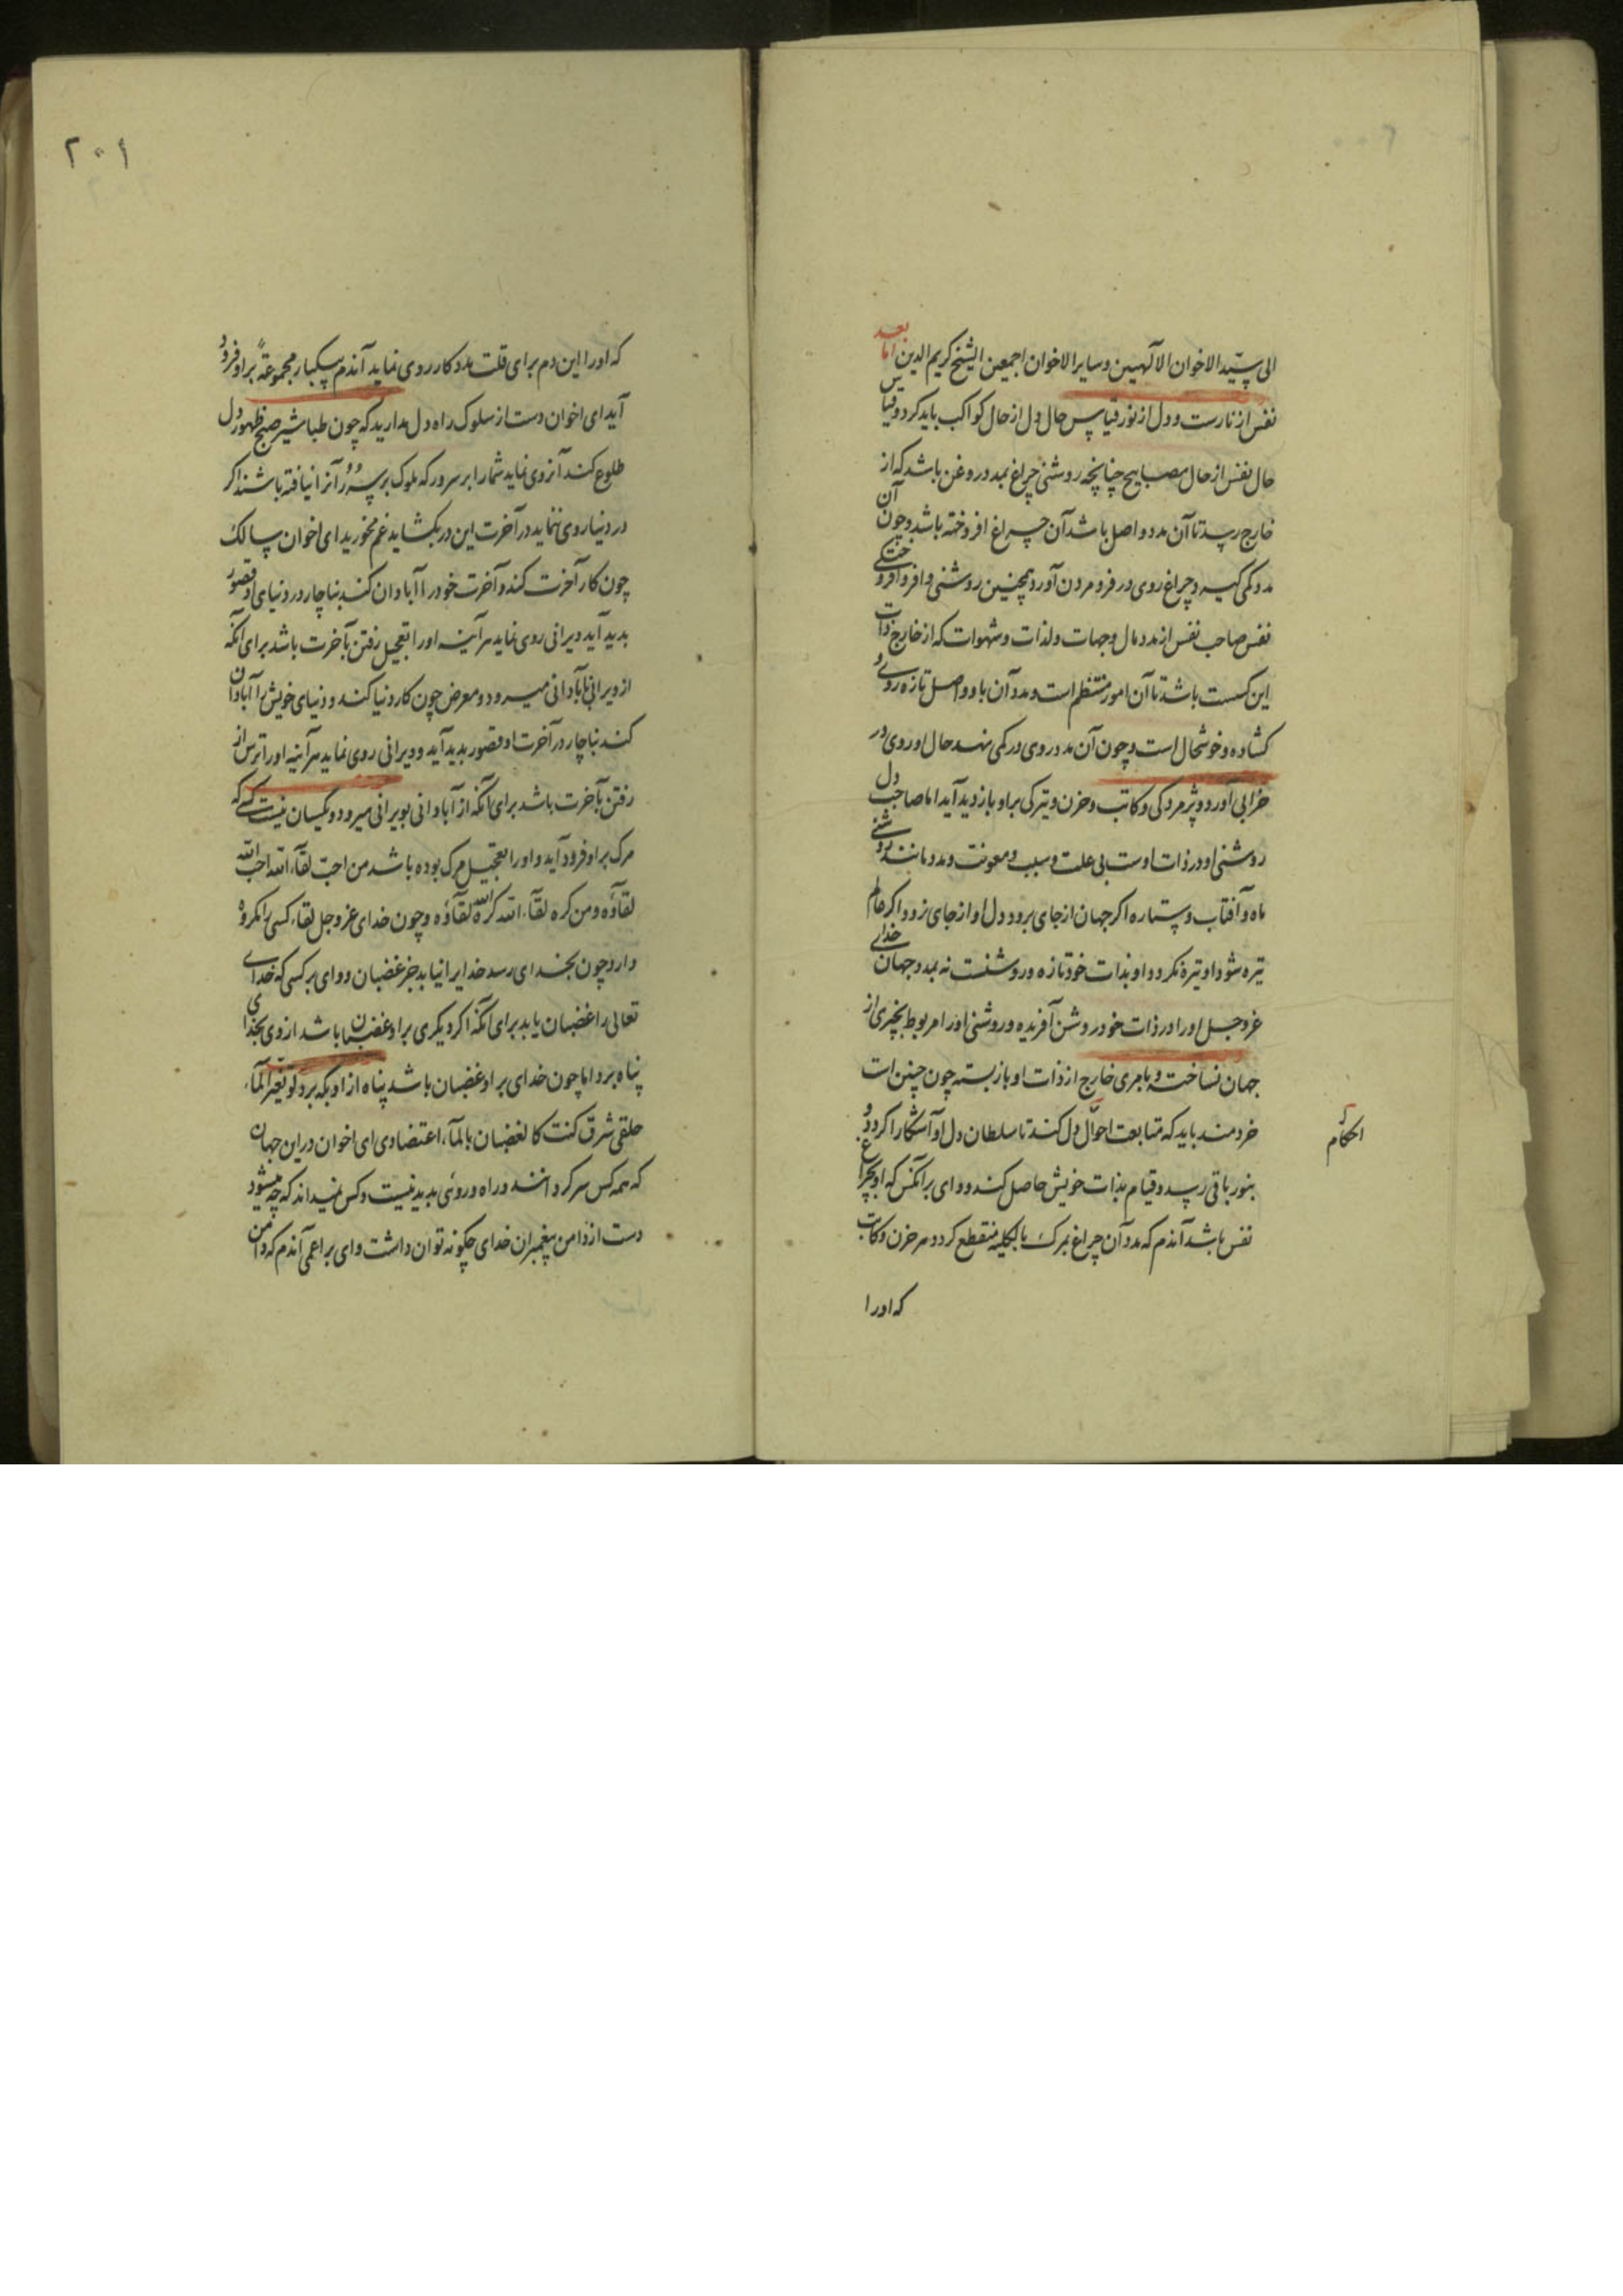 الی سیّد الاخوان الآلهیین و سایر الاخوان اجمعین الشیخ کریم الدین اما بعد
نفس از نارست و دل از نور قیاس حال دل از حال کواکب باید کرد و قیاس
حال نفس از حال مصابیح چنانچه روشنی چراغ بمدد روغن باشد که از
خارج رسد تا آن مدد واصل باشد آن چراغ افروخته باشد و چون آن
مدد کمی گیرد چراغ روی در فرو مردن آورد همچنین روشنی و افروختگی
نفس صاحب نفس از مدد مال و جهات و لذات و شهوات که از خارج ذات
این کسست باشد تا آن امور منتظم است و مدد آن باو واصل تازه روی و
کشاده و خوشحال است و چون آن مدد روی در کمی نهد حال او روی در
خرابی آورد و پژمردکی و کاتب و حزن و تیرکی بر او بازدید آید اما صاحب دل
روشنی او در ذات اوست بی علت و سبب و معونت و مدد مانند روشنی
ماه و آفتاب و ستاره اکر جهان از جای برود دل او از جای نرود و اکر عالم
تیره شود او تیره نکردد او بذات خود تازه و روشنست نه بمدد جهان خدای
عز و جل او را در ذات خود روشن آفریده و روشنی او را مربوط بچیزی از
جهان نساخت و بامری خارج از ذات او باز بسته چون چنین است
خردمند باید که متابعت احوال دل کند تا سلطان دل او آشکارا کردد و
بنور باقی رسد و قیام بذات خویش حاصل کند و وای بر آنکس که او بچراغ
نفس باشد آندم که مدد آن چراغ بمرک بالکلیه منقطع کردد هر حزن و کاتب
که اورا
احکام
۲۰۱
که او را این دم برای قلت مدد کار روی نماید آندم بیکبار مجموعةً بر او فرود
آید ای اخوان دست از سلوک راه دل مدارید که چون طباشیر صبح ظهور دل
طلوع کند آنروی نماید شما را بر سرور که ملوک بر سُرُر آنرا نیافته باشند اکر
در دنیا روی ننماید در آخرت این در بکشاید غم مخورید ای اخوان سالک
چون کار آخرت کند و آخرت خود را آبادان کند بناچار در دنیای او قصور
بدید آید ویرانی روی نماید هر آینه او را تعجیل رفتن بآخرت باشد برای آنکه
از ویرانی بآبادانی میرود و معرض چون کار دنیا کند و دنیای خویش را آبادان
کند بناچار در آخرت او قصور بدید آید و ویرانی روی نماید هر آینه او را ترس از
رفتن بآخرت باشد برای آنکه از آبادانی بویرانی میرود و یکسان نیست کسی که
مرک بر او فرود آید و او را تعجیل مرک بوده باشد من احبّ لقآء الله احب الله
لقآؤه و من کره لقآء الله کره الله لقآؤه و چون خدای عز و جل لقاء کسی را مکروه
دارد چون بخدای رسد خدایرا نیابد جز غضبان و وای بر کسی که خدای
تعالی را غضبان یابد برای آنکه اکر دیکری بر او غضبان باشد از وی بخدای
پناه برد اما چون خدای بر او غضبان باشد پناه از او بکه برد لو بغیر المآء
حلقی شرق کنت کالغضبان بالمآء اعتضادی ای اخوان در این جهان
که همه کس سر کردانند و راه و روئی بدید نیست و کس نمیداند که چه میشود
دست از دامن پیغمبران خدای چکونه توان داشت وای بر اعمی آندم که دامن